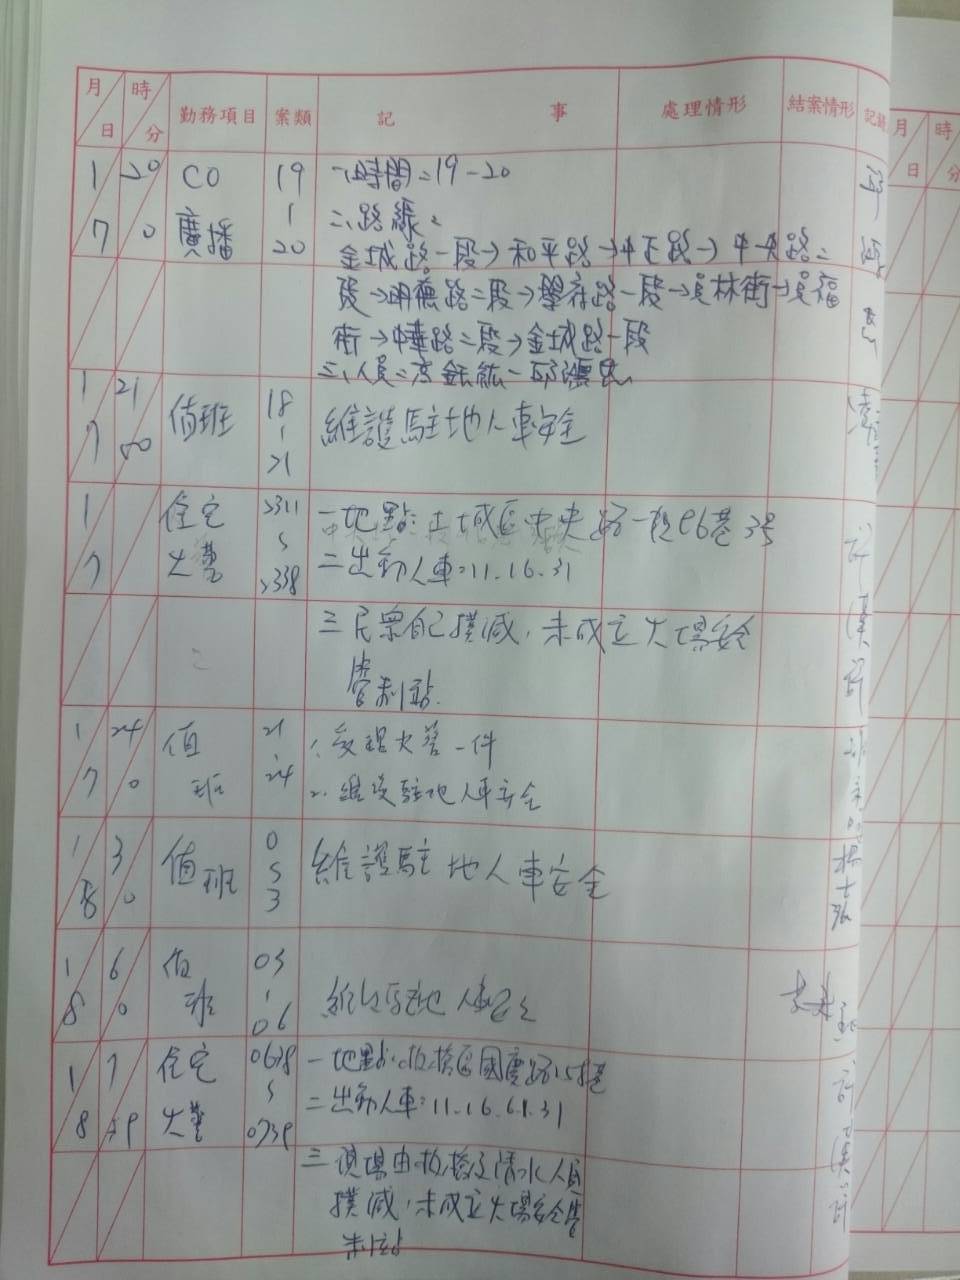 月 日 時 分 勤務項目 案類 記 事 處理情形 結案情形 月 日 時 分
1 20 CO 19 一、時間：19-20
7 0 廣播 | 20 二、路線：
金城路一段→和平路→中正路→中央路二
段→明德路二段→學府路一段→員林街→員福
街→中華路二段→金城路一段
三、人員：
1 21 值班 18 維護駐地人車安全
7 00 | 21
1 住宅 2311 一地點：土城區中央路一段 巷3号
7 火警 2338 二出動人車：11.16.31
三民眾自己撲滅，未成立火場安全
管制站.
1 24 值 21 1.受理火警一件
7 0 班 24 2.維護駐地人車安全
1 3 值班 0 維護駐地人車安全
8 0 3
1 6 值 03 維護駐地人車安全
8 0 班 | 06
1 7 住宅 0638 一地點：板橋區國慶路 巷
8 火警 0739 二出動人車：11.16.61.31
三現場由板橋及清水人員
撲滅，未成立火場安全管
制站